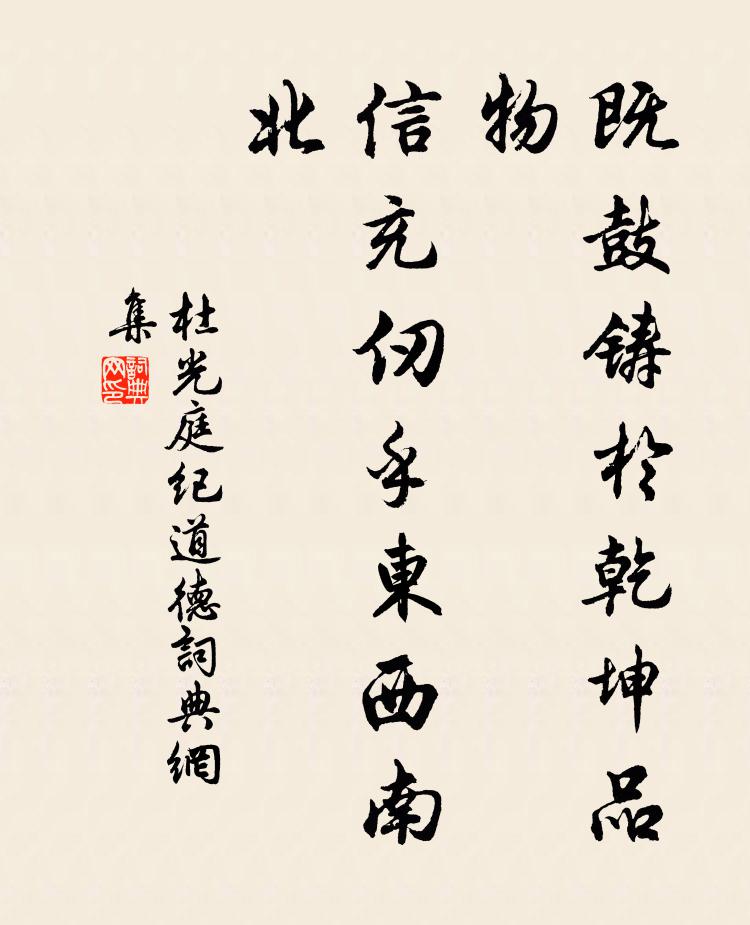 既鼓铸於乾坤品
物
信充仞乎東西南
北
杜光庭纪道德詞典網
集
詞典
网印